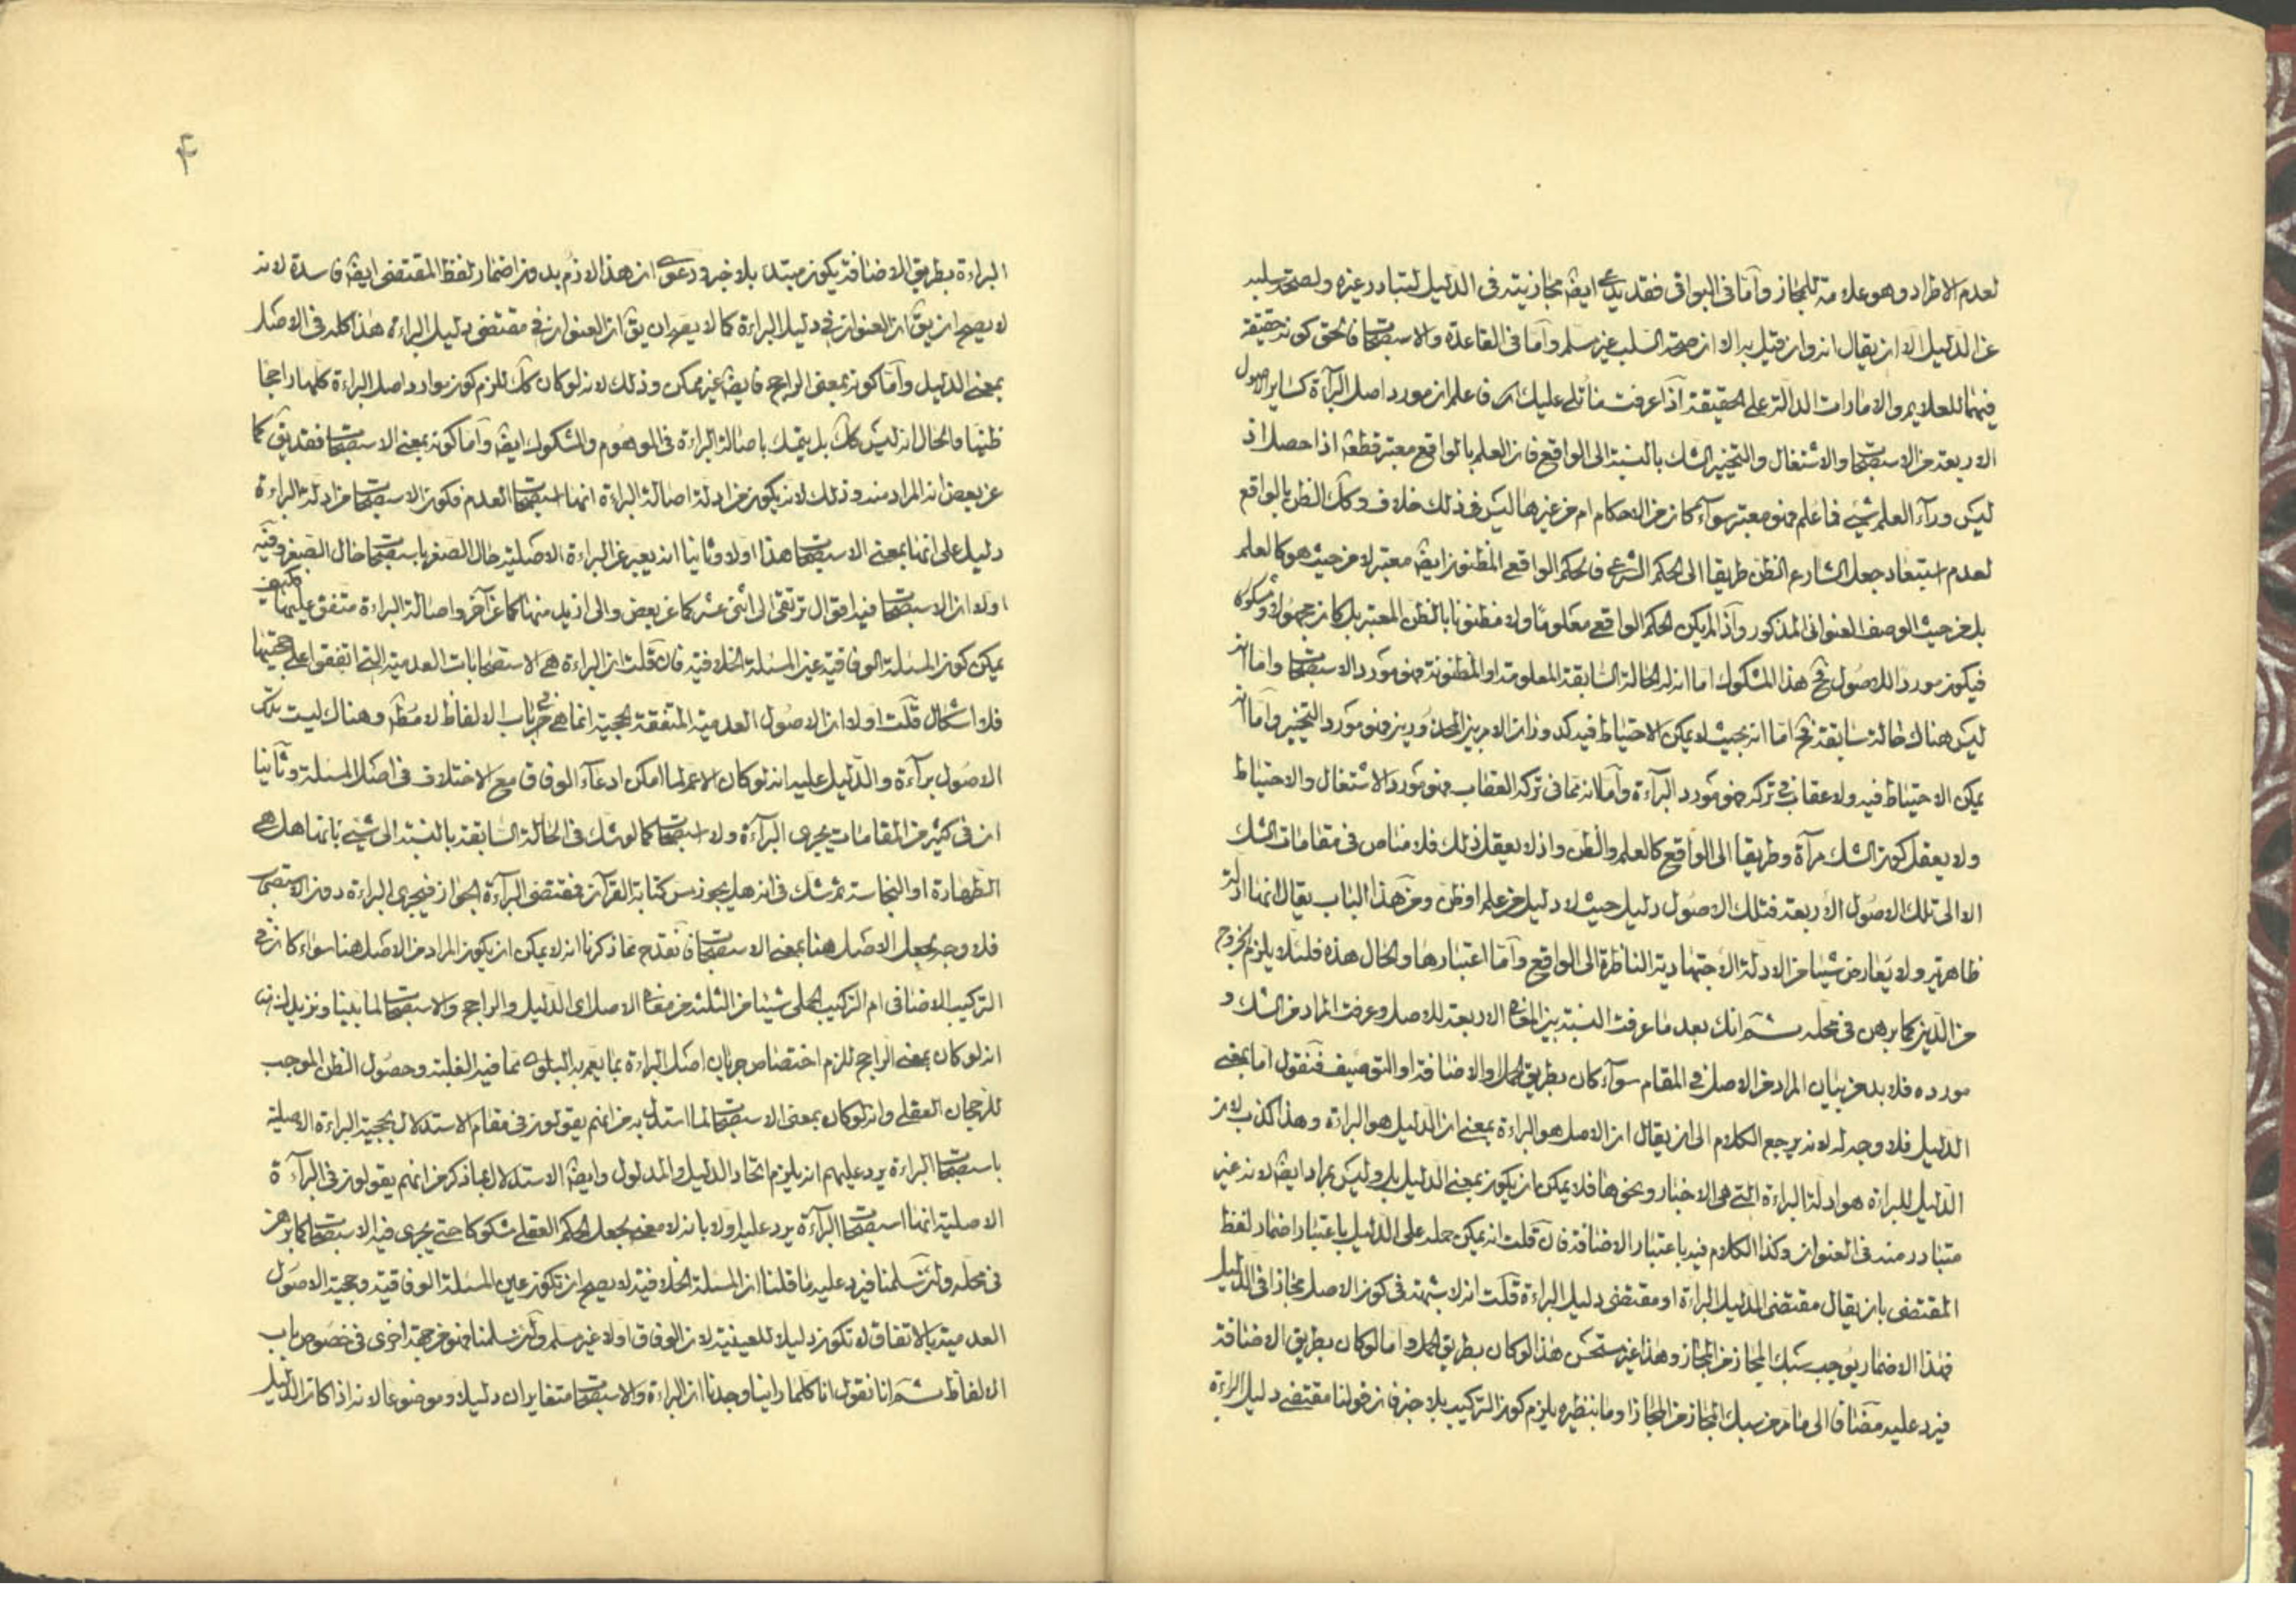 لعدم الاطراد وهو علامة للمجاز وآما فى البواقى فقد يدعى ايضا مجازيته فى الدليل لتبادر غيره ولصحة سلبه
عن الدليل الا ان يقال انه وان قيل به الا ان صحة السلب غير مسلم وآما فى القاعدة والاستصحاب فالحق كونه حقيقة
فيهما للعلايم والامارات الدالة على الحقيقة اذا عرفت ما تلى عليك فاعلم ان مورد اصل البرآءة كساير الاصول
الاربعة من الاستصحاب والاشتغال والتخيير الشك بالنسبة الى الواقع فان العلم بالواقع معتبر قطعا اذا حصل اذ
ليس ورآء العلم شئ فاعلم فهو معتبر سوآء كان من الاحكام ام من غيرها ليس فى ذلك خلاف وكك الظن بالواقع
لعدم استبعاد جعل الشارع الظن طريقا الى الحكم الشرعى فالحكم الواقعى المظنون ايضا معتبر لا من حيث هو كالعلم
بل من حيث الوصف العنوانى المذكور وآذا لم يكن الحكم الواقعى معلوما ولا مظنونا بالظن المعتبر بل كان مجهولا ومشكوكا
فيكون موردا للاصول فح هذا المشكوك اما انه له الحالة السابقة المعلومة او المظنونة فهو مورد الاستصحاب واما انه
ليس هناك حالة سابقة فح اما انه بحيث لا يمكن الاحتياط فيه كدوران الامر بين المحذورين فهو مورد التخيير وآما انه
يمكن الاحتياط فيه ولا عقاب فى تركه فهو مورد البرآءة وآما لا انه مما فى تركه العقاب فهو مورد الاشتغال والاحتياط
ولا يعقل كون الشك مرآة وطريقا الى الواقع كالعلم والظن واذ لا يعقل ذلك فلا مناص فى مقامات الشك
الا الى تلك الاصول الاربعة فتلك الاصول دليل حيث لا دليل من علم او ظن ومن هذا الباب يقال انها ادلة
ظاهرية ولا يعارض شيئا من الادلة الاجتهادية الناظرة الى الواقع وآما اعتبارها والحال هذه فلئلا يلزم الخروج
من الدين كما برهن فى محله ثم انك بعد ما عرفت النسبة بين المعانى الاربعة للاصل وعرفت المراد من الشك و
مورده فلا بد من بيان المراد من الاصل فى المقام سوآء كان بطريق الحمل او الاضافة او التوصيف فنقول اما بمعنى
الدليل فلا وجه له لانه يرجع الكلام الى ان يقال ان الاصل هو البراءة بمعنى ان الدليل هو البراءة وهذا كذب لان
الدليل للبراءة هو ادلة البراءة التى هى الاخبار ونحوها فلا يمكن ان يكون بمعنى الدليل بل وليس بمراد ايضا لانه غير
متبادر منه فى العنوان وكذا الكلام فيه باعتبار الاضافة فان قلت انه يمكن حمله على الدليل باعتبار اضمار لفظ
المقتضى بان يقال مقتضى الدليل البراءة او مقتضى دليل البراءة قلت انه لا شبهة فى كون الاصل مجازا فى الدليل
فهذا الاضمار يوجب سبك المجاز من المجاز وهذا غير مستحسن هذا لو كان بطريق الحمل واما لو كان بطريق الاضافة
فيرد عليه مضافا الى ما مر من سبك المجاز من المجاز او ما بنظيره يلزم كون التركيب بلا خبر فان قولنا مقتضى دليل البراءة
۴
البراءة بطريق الاضافة يكون مبتدء بلا خبر ودعوى ان هذا لازم بدون اضمار لفظ المقتضى ايضا فاسدة لانه
لا يصح ان يق ان العنوان فى دليل البراءة كما لا يصح ان يق ان العنوان فى مقتضى دليل البراءة هذا كله فى الاصل
بمعنى الدليل وآما كونه بمعنى الراجح فايضا غير ممكن وذلك لانه لو كان كك للزم كون موارد اصل البراءة كلها راجحا
ظنيا والحال انه ليس كك بل يتمسك باصالة البراءة فى الموهوم والمشكوك ايضا وآما كونه بمعنى الاستصحاب فقد يق كما
عن بعض انه المراد منه وذلك لانه يكون من ادلة اصالة البراءة انها استصحاب العدم فكون الاستصحاب من ادلة البراءة
دليل على انها بمعنى الاستصحاب هذا اولا وثانيا انه يعبر عن البراءة الاصلية حال الصغر باستصحاب حال الصغر وفيه
اولا ان الاستصحاب فيه اقوال ترتقى الى اثنى عشر كما عن بعض والى ازيد منها كما عن آخر واصالة البراءة متفق عليها فكيف
يمكن كون المسئلة الوفاقية عين المسئلة الخلافية فان قلت ان البراءة هى الاستصحابات العدمية التى اتفقوا على حجيتها
فلا اشكال قلت اولا ان الاصول العدمية المتفقة الحجية انما هى فى باب الالفاظ لا مطلقا وهناك ليست تلك
الاصول برآءة والدليل عليه انه لو كان الاعم لما امكن ادعآء الوفاق مع الاختلاف فى اصل المسئلة وثانيا
ان فى كثير من المقامات يجرى البرآءة ولا استصحاب كما لو شك فى الحالة السابقة بالنسبة الى شئ بانها هل هى
الطهارة او النجاسة ثم شك فى انه هل يجوز مس كتابة القرآن فمقتضى البرآءة الجواز فيجرى البراءة دون الاستصحاب
فلا وجه لجعل الاصل هنا بمعنى الاستصحاب فقدح مما ذكرنا انه لا يمكن ان يكون المراد من الاصل هنا سواء كان فى
التركيب الاضافى ام التركيب الحملى شيئا من الثلثة من معانى الاصل اى الدليل والراجح والاستصحاب لما بينا ونزيدك
انه لو كان بمعنى الراجح للزم اختصاص جريان اصل البراءة بما يعم به البلوى مما فيه الغلبة وحصول الظن الموجب
للرجحان العقلى وانه لو كان بمعنى الاستصحاب لما استدل به من انهم يقولون فى مقام الاستدلال بحجية البراءة الاصلية
باستصحاب البراءة يرد عليهم انه يلزم اتحاد الدليل والمدلول وايضا الاستدلال بما ذكر من انهم يقولون فى البرآءة
الاصلية انها استصحاب البرآءة يرد عليه اولا بانه لا معنى لجعل الحكم العقلى مشكوكا حتى يجرى فيه الاستصحاب كما برهن
فى محله ولئن سلمنا فيرد عليه ما قلنا ان المسئلة الخلافية لا يصح ان تكون عين المسئلة الوفاقية وحجية الاصول
العدمية بالاتفاق لا تكون دليلا للعينية لان الوفاق اولا غير مسلم ولئن سلمنا فهو من جهة اخرى فى خصوص باب
الالفاظ ثم انا نقول انا كلما راينا وجدنا ان البراءة والاستصحاب متغايران دليلا وموضوعا لانه اذا كان الدليل